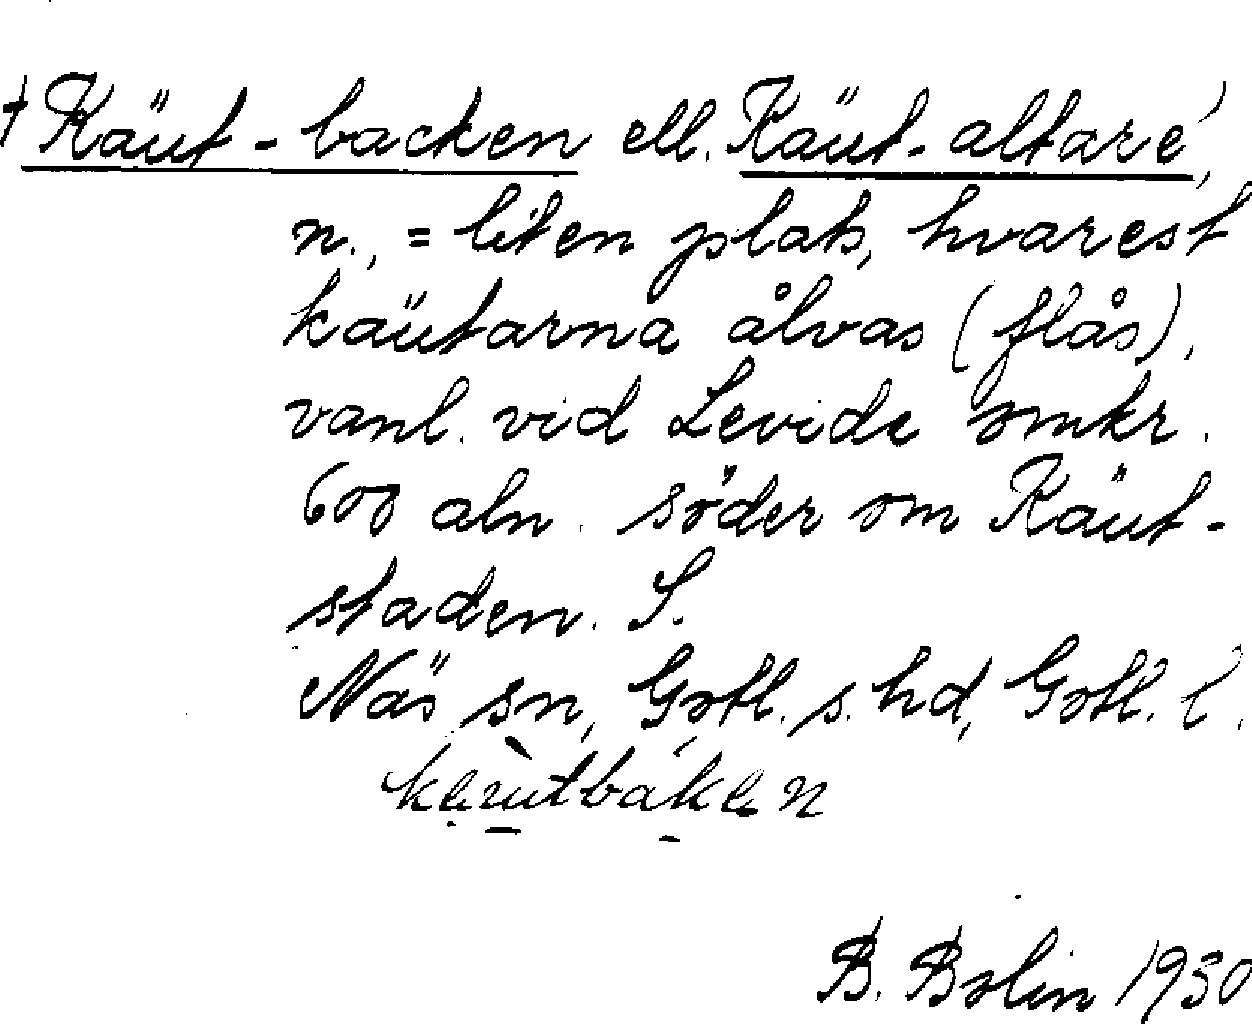 † Käüt-backen ell. Käüt-altare',
n., = liten plats, hvarest
käütarna ålvas (flås),
vanl. vid Levide omkr.
600 aln. söder om Käüt-
staden. S.
Näs sn, Gotl. s. hd, Gotl. l.
B. Bolin 1930